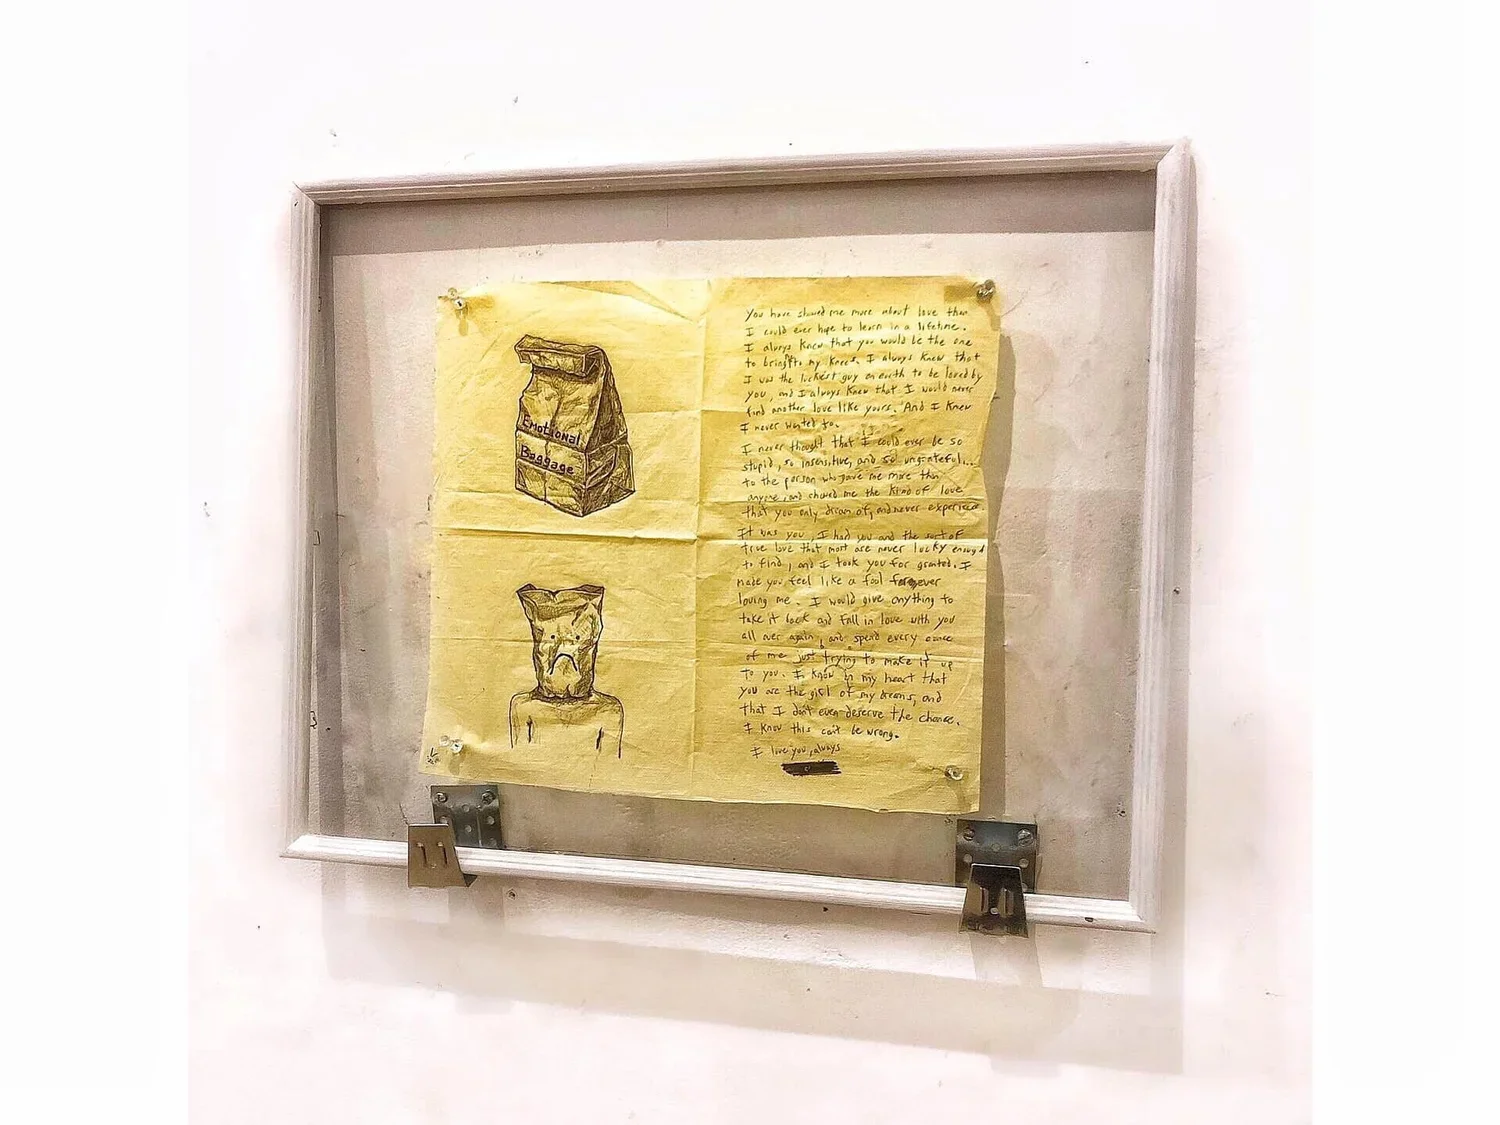 Emotional
Baggage
You have showed me more about love than
I could ever hope to learn in a lifetime.
I always knew that you would be the one
to bring to my knees. I always knew that
I was the luckiest guy on earth to be loved by
you, and I always knew that I would never
find another love like yours. And I knew
I never wanted to.
I never thought that I could ever be so
stupid, so insensitive, and so ungrateful...
to the person who gave me more than
anyone, and showed me the kind of love
that you only dream of, and never experience.
It was you, I had you and the sort of
true love that most are never lucky enough
to find, and I took you for granted. I
made you feel like a fool for ever
loving me. I would give anything to
take it back and fall in love with you
all over again, and spend every ounce
of me just trying to make it up
to you. I know in my heart that
you are the girl of my dreams, and
that I don't even deserve the chance.
I know this can't be wrong.
I love you, always